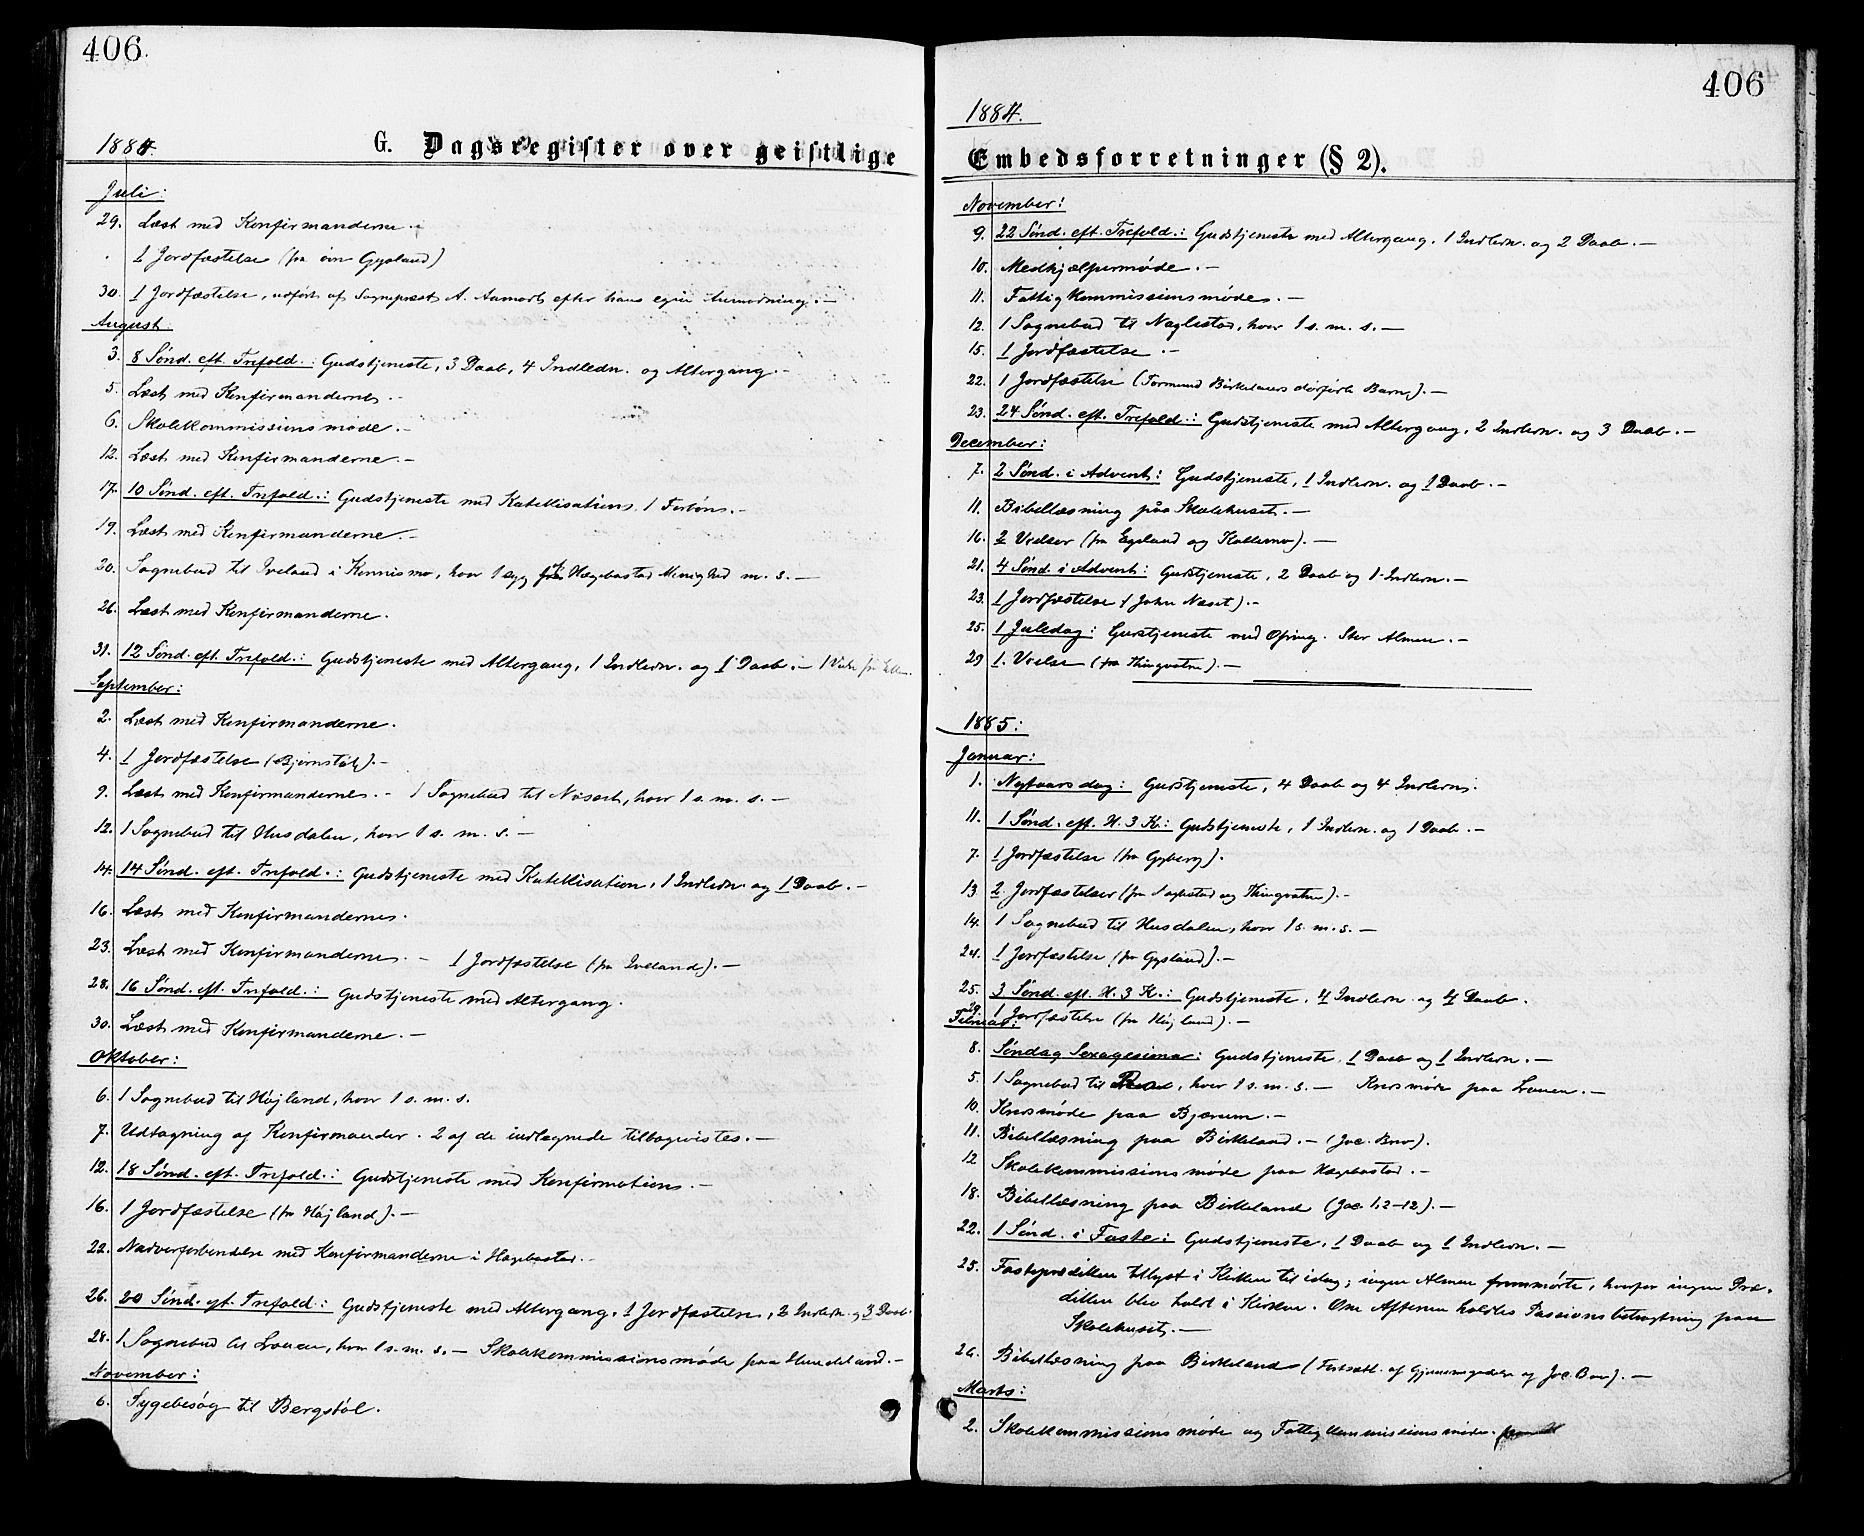 406.
1884.
G. Dagsregister over geistlige
Juli:
29. Læst med Konfirmanderne.
1 Jordfæstelse (fra Gysland)
30. 1 Jordfæstelse, udført af Sognepræst A. Aamodt efter hans egen Anmodning. —
August:
3. 8 Sønd. eft. Trefold.: Gudstjeneste, 3 Daab, 4 Indledn. og Altergang. —
5. Læst med Konfirmanderne.
6. Skolekommissionsmøde. —
12. Læst med Konfirmanderne. —
17. 10 Sønd. eft. Trefold.: Gudstjeneste med Katekisation. 1 Forbøn. —
19. Læst med Konfirmanderne. —
20. Sognebud til Iveland i Konnismo, hvor 1 syg fra Hægebostad Menighed m. s. —
26. Læst med Konfirmanderne.
31. 12 Sønd. eft. Trefold.: Gudstjeneste med Altergang, 1 Indledn. og 1 Daab. — 1 Vielse
September:
2. Læst med Konfirmanderne.
4. 1 Jordfæstelse (Bjørnstøl). —
9. Læst med Konfirmanderne. — 1 Sognebud til Næset, hvor 1 s. m. s. —
12. 1 Sognebud til Husdalen, hvor 1 s. m. s. —
14. 14 Sønd. eft. Trefold.: Gudstjeneste med Katekisation, 1 Indledn. og 1 Daab. —
16. Læst med Konfirmanderne.
23. Læst med Konfirmanderne. — 1 Jordfæstelse (fra Iveland). —
28. 16 Sønd. eft. Trefold.: Gudstjeneste med Altergang.
30. Læst med Konfirmanderne. —
Oktober:
6. 1 Sognebud til Højland, hvor 1 s. m. s.
7. Udtagning af Konfirmander. 2 af de indtegnede tilbagevistes. —
12. 18 Sønd. eft. Trefold.: Gudstjeneste med Konfirmation. —
16. 1 Jordfæstelse (fra Højland). —
22. Nadverforberedelse med Konfirmanderne i Hægebostad. —
26. 20 Sønd. eft. Trefold.: Gudstjeneste med Altergang, 1 Jordfæstelse, 2 Indledn. og 3 Daab.
28. 1 Sognebud til Lauen, hvor 1 s. m. s. — Skolekommissionsmøde paa Hundeland. —
November:
6. Sygebesøg til Bergstøl.
406
1884.
Embedsforretninger (§ 2).
November:
9. 22 Sønd. eft. Trefold.: Gudstjeneste med Altergang, 1 Indledn. og 2 Daab. —
10. Medhjælpermøde. —
11. Fattigkommissionsmøde. —
12. 1 Sognebud til Naglestad, hvor 1 s. m. s. —
15. 1 Jordfæstelse. —
22. 1 Jordfæstelse (Tormund Birkelands dødfødte Barn). —
23. 24 Sønd. eft. Trefold.: Gudstjeneste med Altergang, 2 Indledn. og 3 Daab. —
December:
7. 2 Sønd. i Advent: Gudstjeneste, 1 Indledn. og 1 Daab. —
11. Bibellæsning paa Skolehuset. —
16. 2 Vielser (fra Egeland og Kollemo). —
21. 4 Sønd. i Advent: Gudstjeneste, 2 Daab og 1 Indledn. —
23. 1 Jordfæstelse (John Næset). —
25. 1 Juledag: Gudstjeneste med Ofring. Stor Almue. —
29 1. Vielse (fra Thingvatne). —
1885:
Januar:
1. Nytaarsdag: Gudstjeneste, 4 Daab og 4 Indledn.
11. 1 Sønd. eft. H. 3 K.: Gudstjeneste, 1 Indledn. og 1 Daab. —
7. 1 Jordfæstelse (fra Gyberg).
13 2. Jordfæstelser (fra Naglestad og Thingvatne). —
14. 1 Sognebud til Husdalen, hvor 1 s. m. s. —
24. 1 Jordfæstelse (fra Gysland). —
25. 3 Sønd. eft. H. 3 K.: Gudstjeneste, 4 Indledn. og 4 Daab.
29. 1 Jordfæstelse (fra Højland). —
Februar:
8. Søndag Sexagesima: Gudstjeneste, 1 Daab og 1 Indledn. —
5. 1 Sognebud til , hvor 1 s. m. s. — Kredsmøde paa Lauen. —
10. Kredsmøde paa Bjærum. —
11. Bibellæsning paa Birkeland. — (Jac. Brev).
12 Skolekommissionsmøde paa Hægebostad. —
18. Bibellæsning paa Birkeland (Jac. 1,2–12). —
22. 1 Sønd. i Faste: Gudstjeneste, 1 Daab og 1 Indledn. —
25. Fastepræediken tillyst i Kirken til idag; ingen Almue fremmødte, hvorfor ingen Præ-
diken blev holdt i Kirken. Om Aftenen holdtes Passionsbetragtning paa
Skolehuset. —
26. Bibellæsning paa Birkeland (Fortsætt. af Gjennemgaaelse af Jac. Brev). —
Marts:
2. Skolekommissionsmøde og Fattigkommissionsmøde.